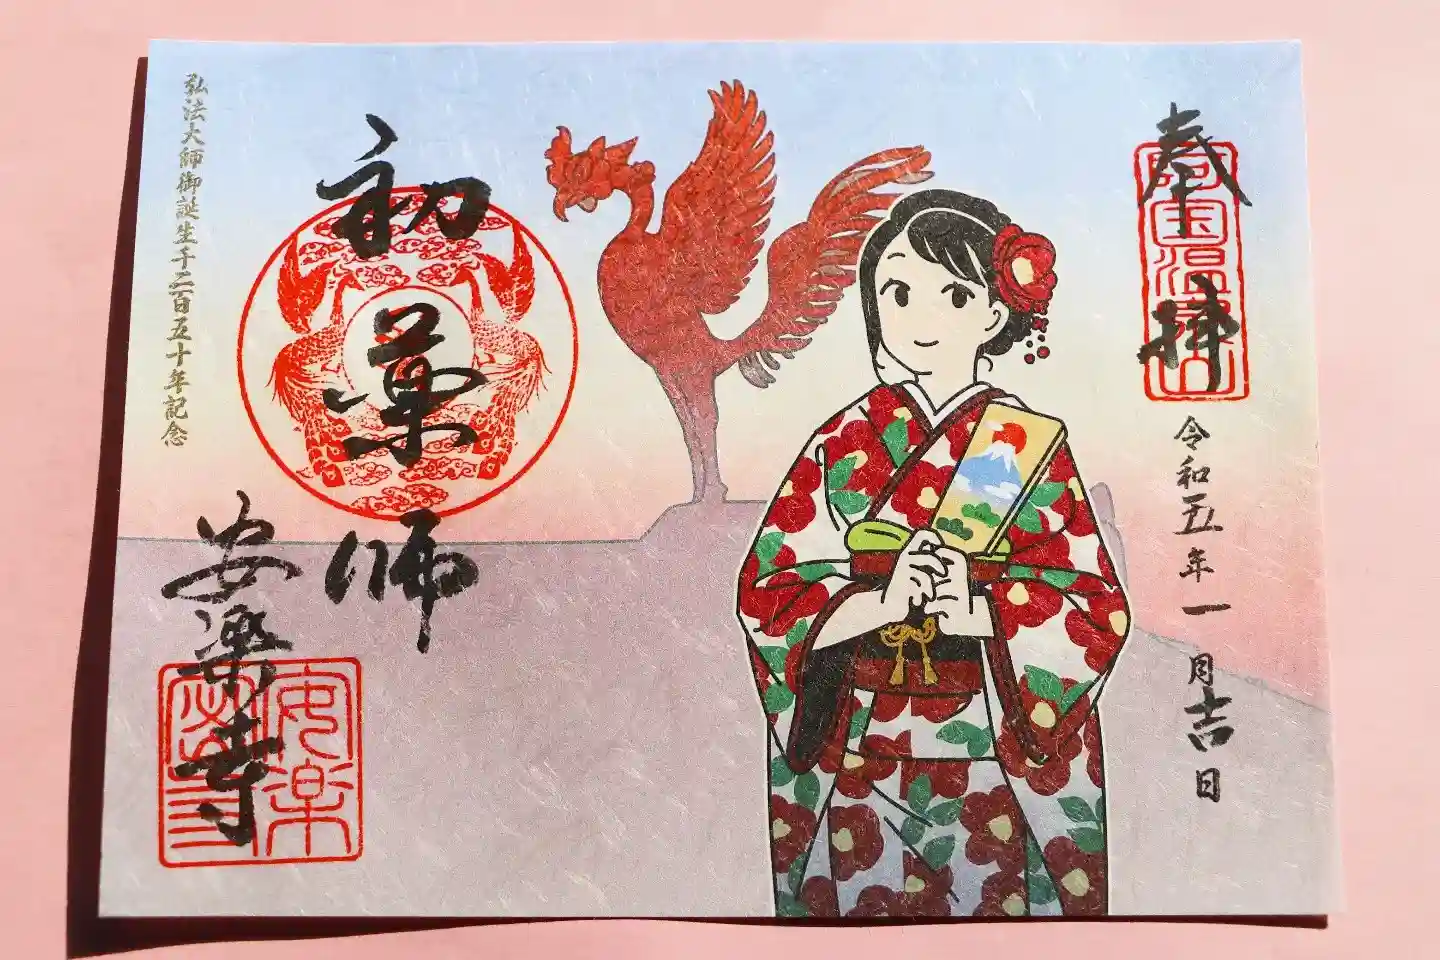 奉拝
阿国温泉山
令和五年一月吉日
初薬師
安楽寺
安楽
弘法大師御誕生千二百五十年記念